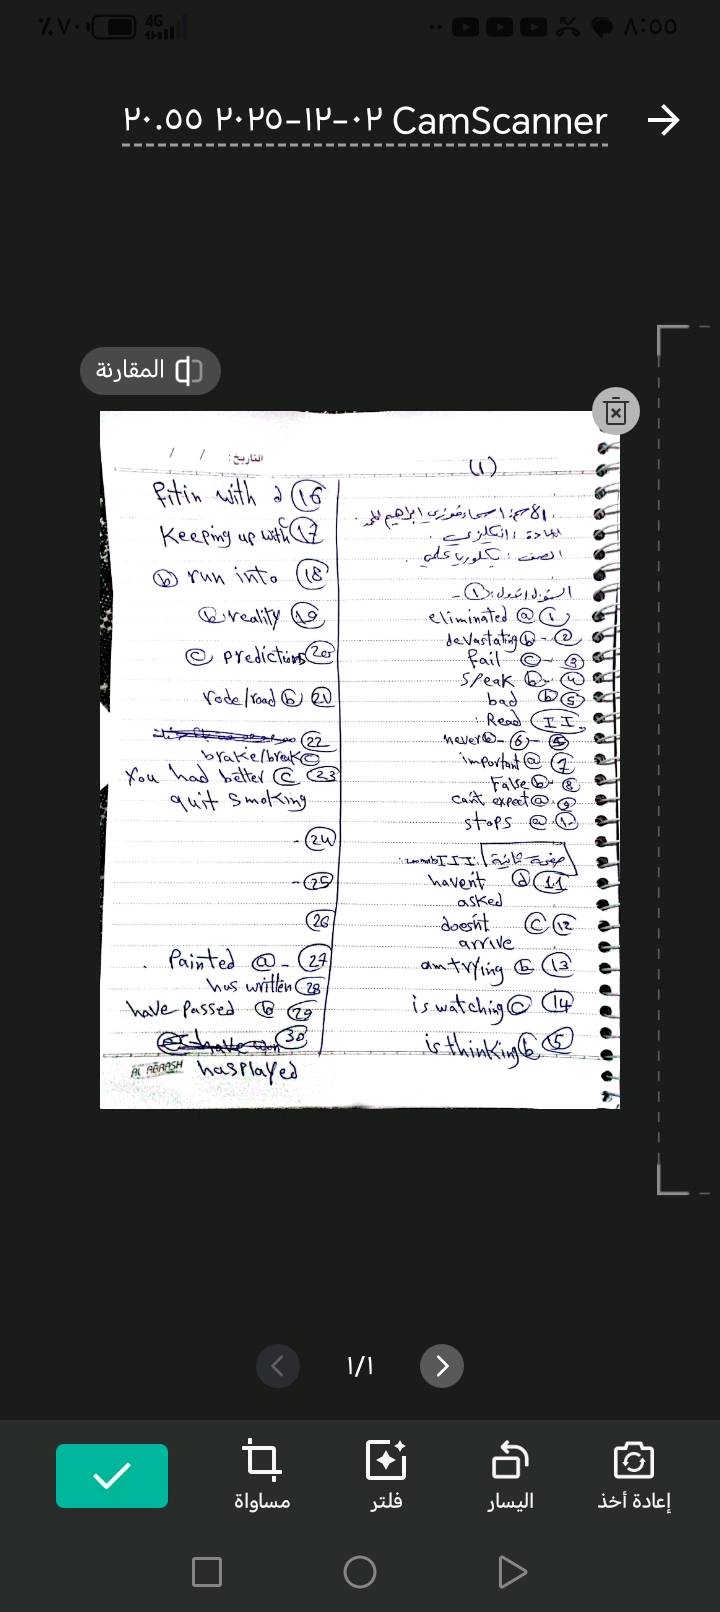 ٪٧٠ 4G ٨:٥٥
CamScanner ٠٢-١٢-٢٠٢٥ ٢٠.٥٥
المقارنة
التاريخ: / /
(١)
المادة: انكليزي.
eliminated ⓐ ①
devastating ⓑ - ②
fail ⓒ - ③
speak ⓑ - ④
bad ⓑ ⑤
: Read II
never ⓑ - ⑥ -
important ⓐ ⑦
False ⓑ - ⑧
can't expect ⓐ - ⑨
stops ⓐ
صفحة ثانية III
haven't ⓓ ⑪
asked
doesn't ⓒ ⑫
arrive
am trying ⓑ ⑬
is watching ⓒ ⑭
is thinking ⓑ ⑮
fit in with d ⑯
Keeping up with c ⑰
ⓑ run into ⑱
ⓑ reality ⑲
ⓒ predictions ⑳
rode/road ⓑ ㉑
㉒
brake/break ⓒ
You had better ⓒ ㉓
quit smoking
- ㉔
- ㉕
㉖
. Painted ⓐ - ㉗
has written ㉘
have passed ⓑ ㉙
㉚
has played
AL ABRASH
١/١
مساواة
فلتر
اليسار
إعادة أخذ